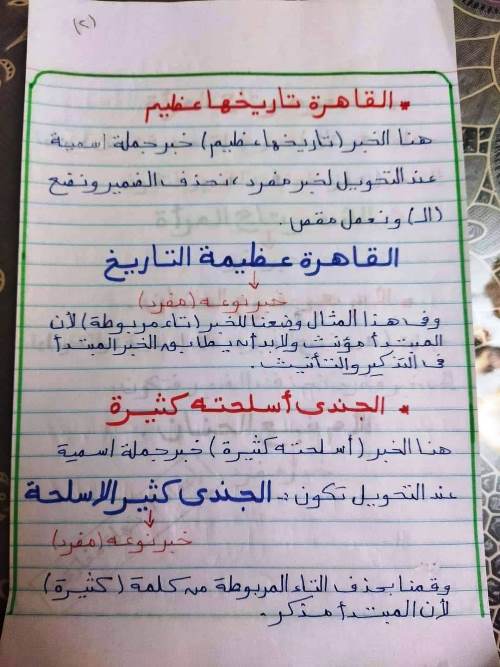 (٢)
* القاهرة تاريخها عظيم
هنا الخبر (تاريخها عظيم) خبر جملة اسمية
عند التحويل لخبر مفرد، نحذف الضمير ونضع
(الـ) ونعمل مقص.
القاهرة عظيمة التاريخ
↓
خبر نوعه (مفرد)
وفى هذا المثال وضعنا للخبر (تاء مربوطة) لأن
المبتدأ مؤنث ولابد أن يطابق الخبر المبتدأ
فى التذكير والتأنيث.
* الجندى أسلحته كثيرة
هنا الخبر (أسلحته كثيرة) خبر جملة اسمية
عند التحويل تكون :- الجندى كثير الاسلحة
↓
خبر نوعه (مفرد)
وقمنا بحذف التاء المربوطة من كلمة (كثيرة)
لأن المبتدأ مذكر.